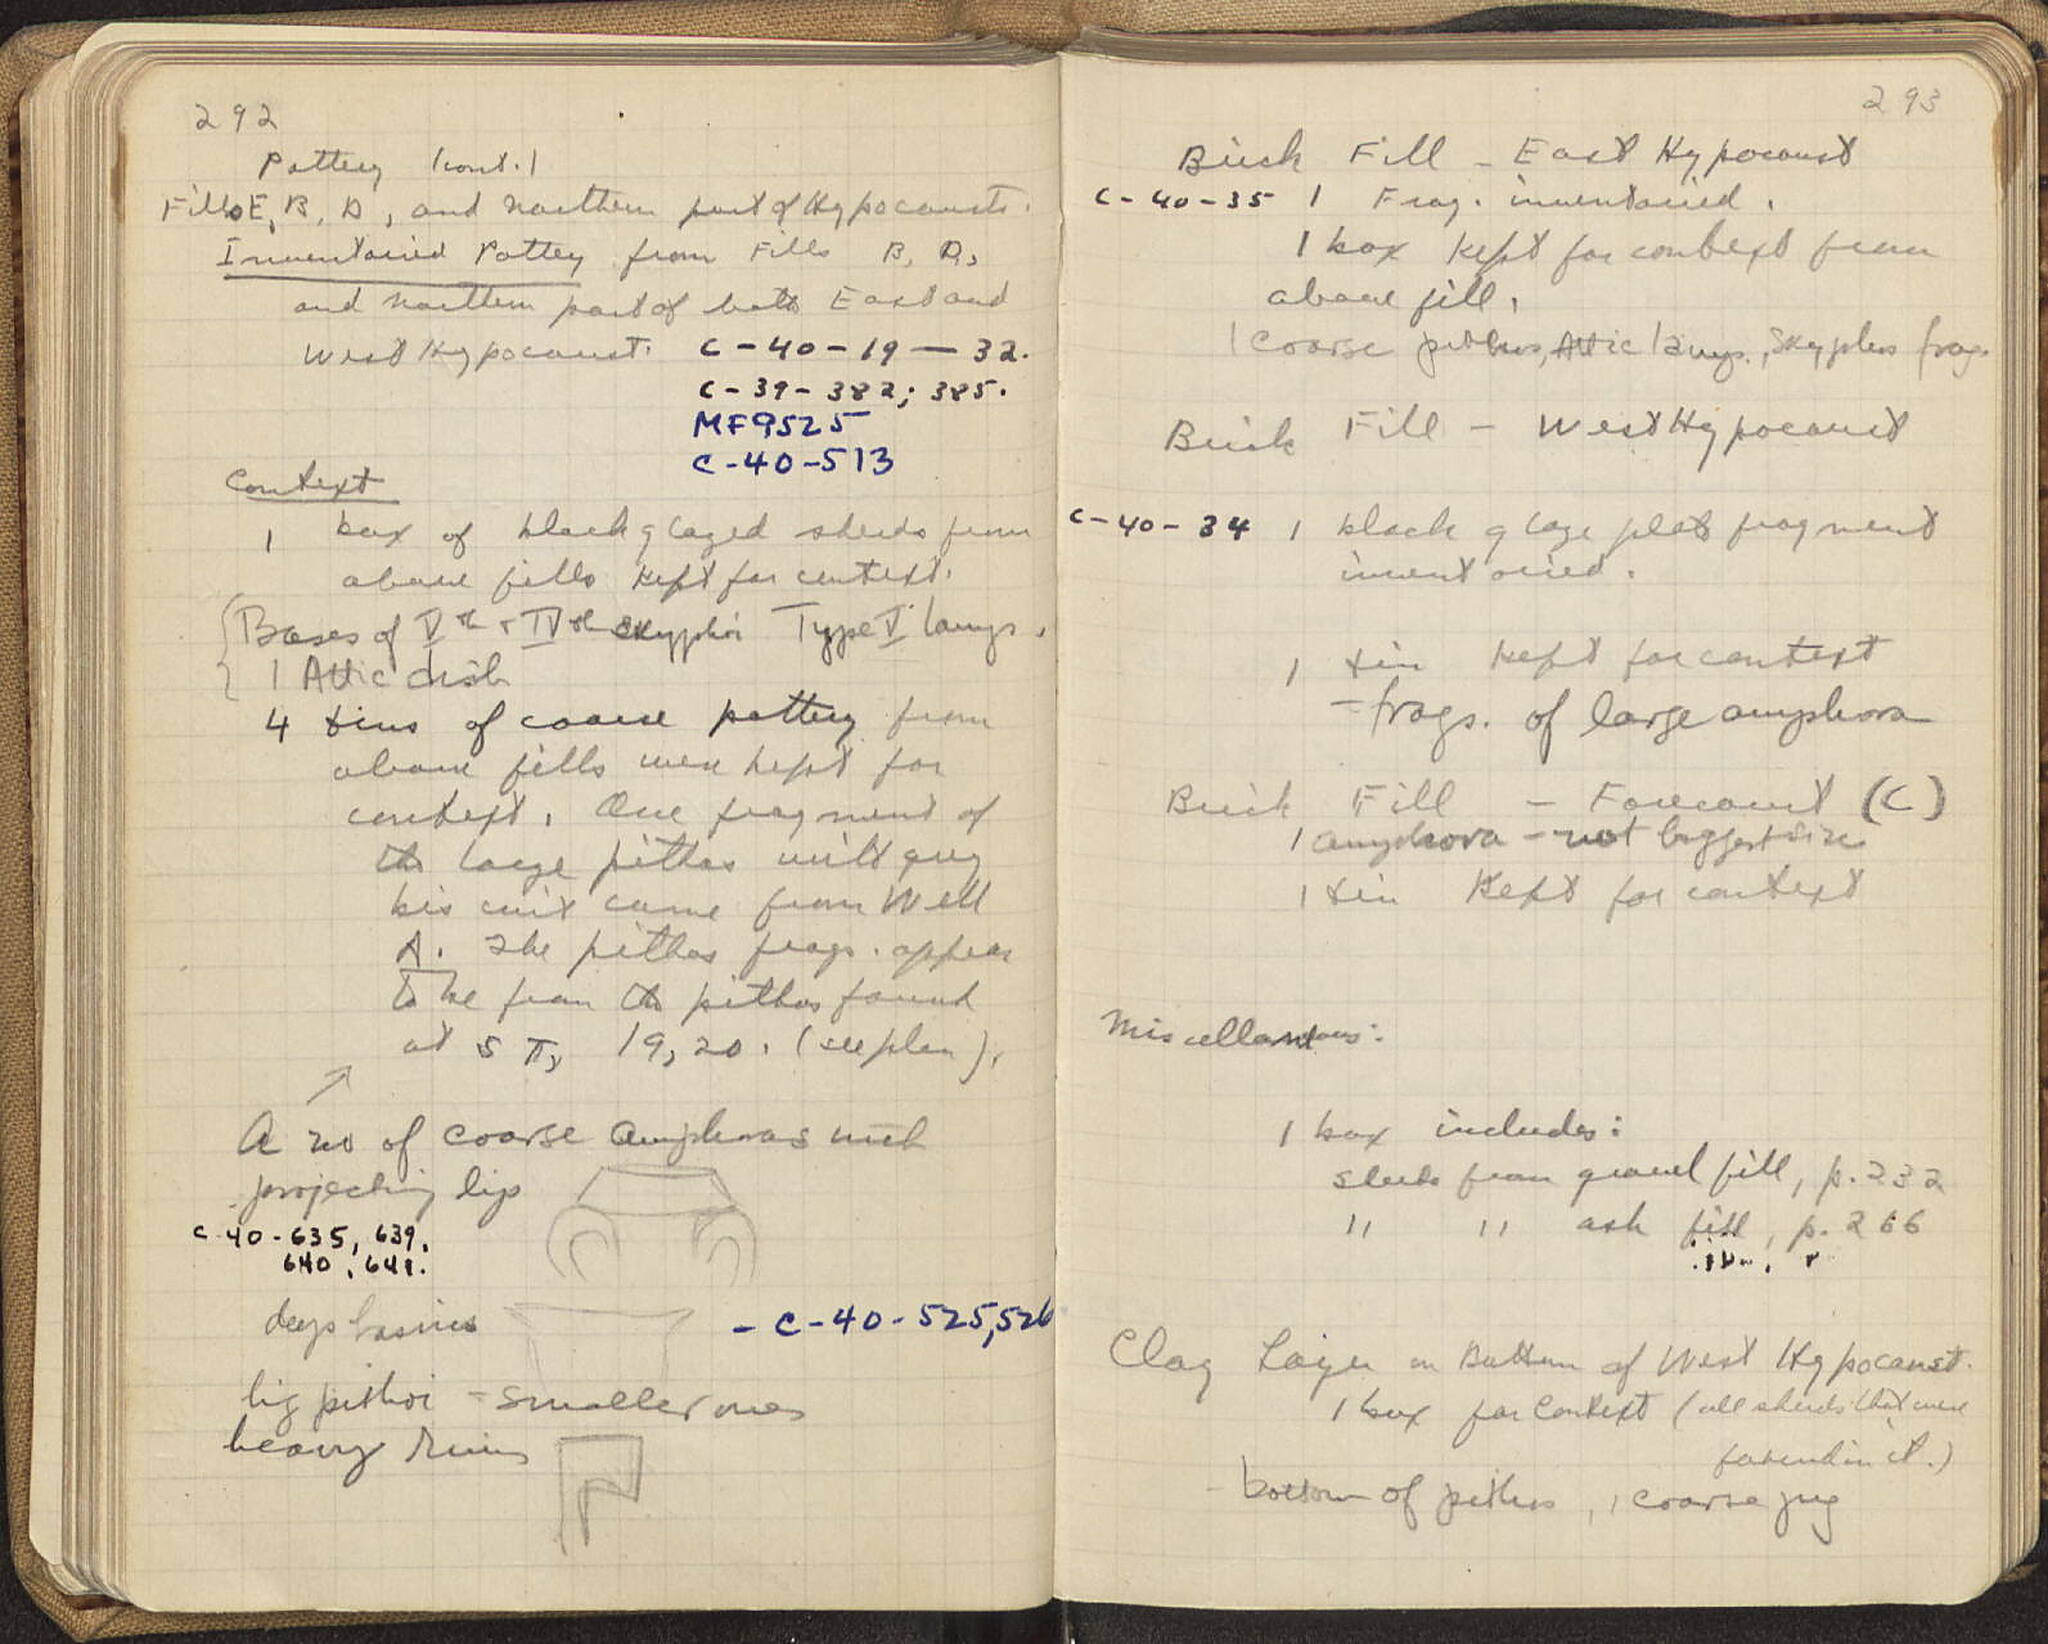 292
Pottery (cont.)
Fills E, B, D, and northern part of Hypocausts.
Inventoried Pottey from Fills B, D,
and northern part of both East and
West Hypocaust. C-40-19 — 32.
C-39-382; 385.
MF9525
C-40-513
Context
1 box of black glazed sherds from
above fills kept for context.
Bases of Vth + IVth skyphoi Type V lamps.
1 Attic dish
4 tins of coarse pottery from
above fills were kept for
context. One fragment of
the large pithos with grey
biscuit came from Well
A. The pithos frags. appear
to be from the pithos found
at 5 π, 19, 20. (see plan).
A no of coarse amphoras with
projecting lip
C-40-635, 639.
640, 641.
deep basins - C-40-525, 526
big pithoi - smaller ones
heavy rims
293
Brick Fill - East Hypocaust
C-40-35 1 Frag. inventoried.
1 box kept for context from
above fill.
1 coarse pithos, Attic lamp., Skyphos frag.
Brick Fill - West Hypocaust
C-40-34 1 black glaze plate fragment
inventoried.
1 tin kept for context
- frags. of large amphora
Brick Fill - Forecourt (C)
1 amphora - not biggest size
1 tin kept for context
Miscellaneous:
1 box includes:
sherds from gravel fill, p. 232
" " ash fill, p. 266
Clay Layer on Bottom of West Hypocaust.
1 box for context (all sherds that were
found in it.)
- bottom of pithos, 1 coarse jug